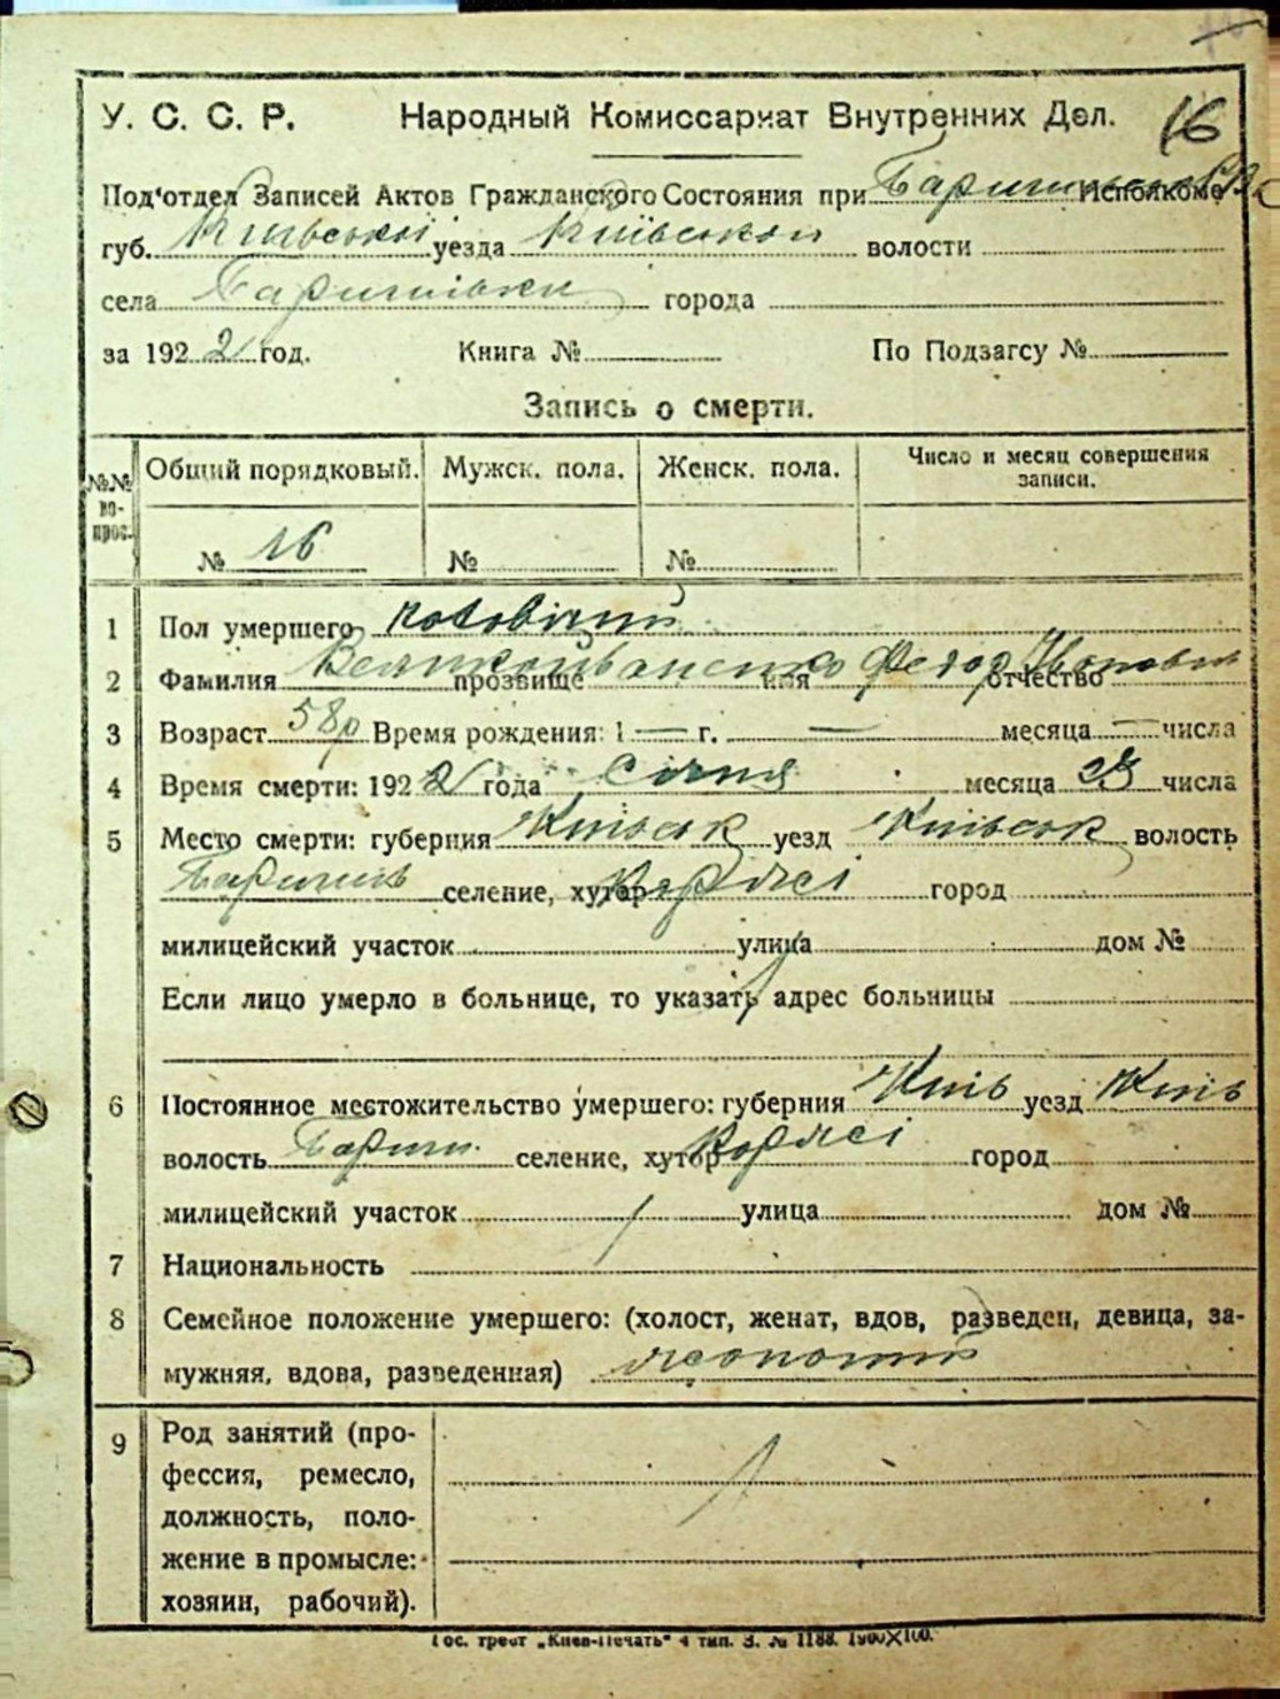 16
У. С. С. Р. Народный Комиссариат Внутренних Дел.
Под'отдел Записей Актов Гражданского Состояния при Исполкоме
губ. Київської уезда Київської волости
села Баришівки города
за 1922 год. Книга № По Подзагсу №
Запись о смерти.
№№ вопрос. Общий порядковый. Мужск. пола. Женск. пола. Число и месяц совершения записи.
№ 16 № №
1 Пол умершего чоловічий
2 Фамилия прозвище имя отчество Великоіваненко Федор Іванович
3 Возраст 58р Время рождения: 1 — г. — месяца — числа
4 Время смерти: 1922 года Січня месяца числа
5 Место смерти: губерния Київськ уезд Київськ волость
Баришів селение, хутор Коржі город
милицейский участок улица дом №
Если лицо умерло в больнице, то указать адрес больницы
6 Постоянное местожительство умершего: губерния Київ уезд Київ
волость Бариш. селение, хутор Коржі город
милицейский участок улица дом №
7 Национальность
8 Семейное положение умершего: (холост, женат, вдов, разведен, девица, за-
мужняя, вдова, разведенная) жонатий
9 Род занятий (про-
фессия, ремесло,
должность, поло-
жение в промысле:
хозяин, рабочий).
Гос. трест „Киев-Печать“ 4 тип. З. № 1188. 1900×100.